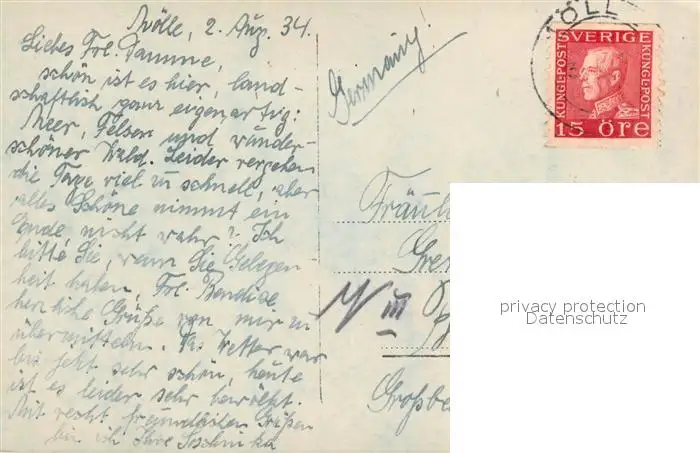 Mölle, 2. Aug. 34.
Liebes Frl. Damme,
schön ist es hier, land-
schaftlich ganz eigenartig:
Meer, Felsen und wunder-
schöner Wald. Leider vergehen
die Tage viel zu schnell, aber
alles Schöne nimmt ein
Ende, nicht wahr? Ich
bitte Sie, wenn Sie Gelegen
heit haben, Frl.
herzliche Grüße von mir zu
übermitteln. Das Wetter war
bis jetzt sehr schön, heute
ist es leider sehr bewölkt.
Mit recht freundlichen Grüßen
bin ich Ihre
Germany!
ÖLL
SVERIGE
KUNGL-POST
KUNGL-POST
15 öre
Fräul
Gre
N III
Großbe
privacy protection
Datenschutz